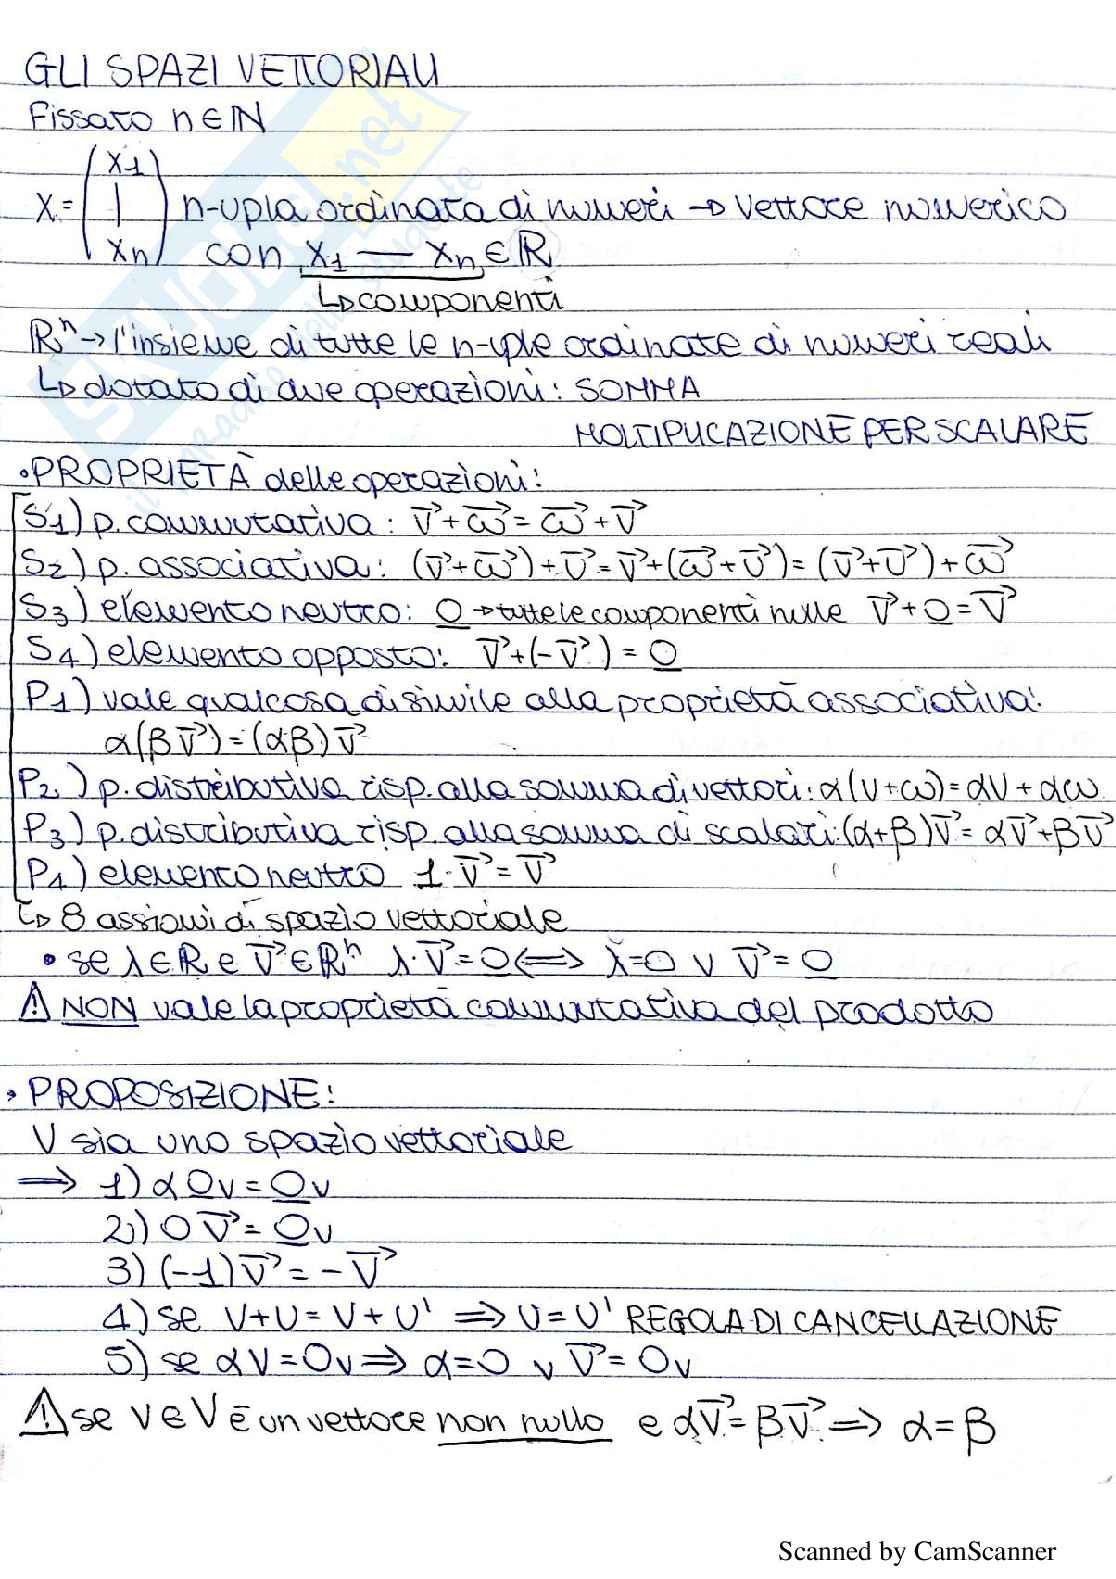 GLI SPAZI VETTORIALI
Fissato n∈ℕ
x = (x1 | xn) n-upla ordinata di numeri → vettore numerico
con x1 — xn ∈ ℝ
↳ componenti
ℝⁿ → l'insieme di tutte le n-uple ordinate di numeri reali
↳ dotato di due operazioni: SOMMA
MOLTIPLICAZIONE PER SCALARE
• PROPRIETÀ delle operazioni:
S1) p. commutativa: v⃗+w⃗=w⃗+v⃗
S2) p. associativa: (v⃗+w⃗)+u⃗=v⃗+(w⃗+u⃗)=(v⃗+u⃗)+w⃗
S3) elemento neutro: 0 → tutte le componenti nulle v⃗+0=v⃗
S4) elemento opposto: v⃗+(-v⃗)=0
P1) vale qualcosa di simile alla proprietà associativa:
α(βv⃗)=(αβ)v⃗
P2) p. distributiva risp. alla somma di vettori: α(v+w)=αv+αw
P3) p. distributiva risp. alla somma di scalari: (α+β)v⃗=αv⃗+βv⃗
P4) elemento neutro 1·v⃗=v⃗
↳ 8 assiomi di spazio vettoriale
• se λ∈ℝ e v⃗∈ℝⁿ λ·v⃗=0 ⟺ λ=0 ∨ v⃗=0
⚠ NON vale la proprietà commutativa del prodotto
• PROPOSIZIONE:
V sia uno spazio vettoriale
⟹ 1) α0v=0v
2) 0v⃗=0v
3) (-1)v⃗=-v⃗
4) se v+u=v+u' ⟹ u=u' REGOLA DI CANCELLAZIONE
5) se αv=0v ⟹ α=0 ∨ v⃗=0v
⚠ se v∈V è un vettore non nullo e αv⃗=βv⃗ ⟹ α=β
Scanned by CamScanner